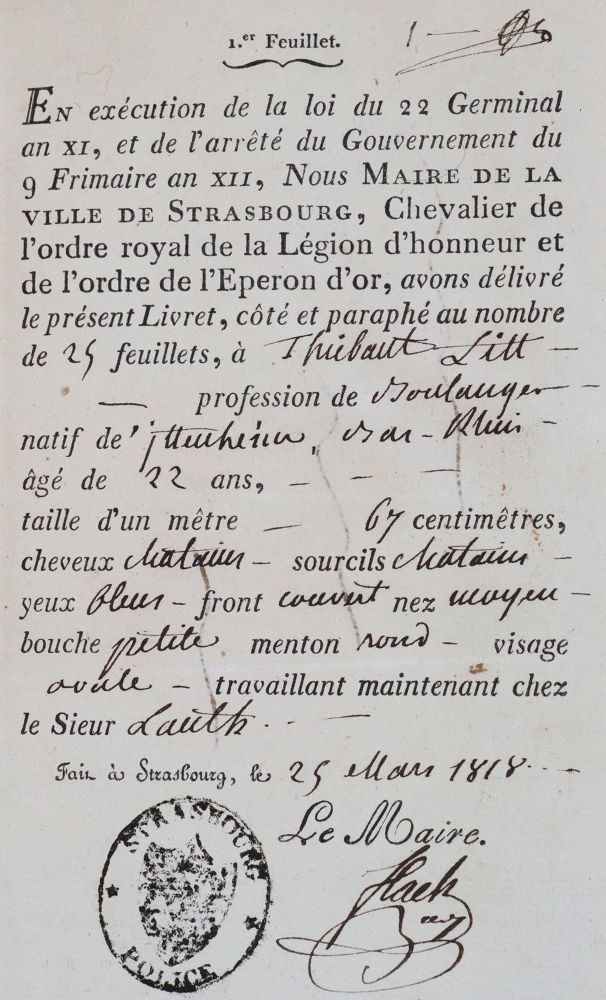 1.er Feuillet.
1 —
En exécution de la loi du 22 Germinal
an XI, et de l'arrêté du Gouvernement du
9 Frimaire an XII, Nous MAIRE DE LA
VILLE DE STRASBOURG, Chevalier de
l'ordre royal de la Légion d'honneur et
de l'ordre de l'Eperon d'or, avons délivré
le présent Livret, côté et paraphé au nombre
de 25 feuillets, à Thibaut Litt —
— profession de Boulanger —
natif de Ittenheim, Bas-Rhin —
âgé de 22 ans, — — —
taille d'un mêtre — 67 centimêtres,
cheveux chatains — sourcils chatains —
yeux bleus — front couvert nez moyen —
bouche petite menton rond — visage
ovale — travaillant maintenant chez
le Sieur Lauth —
Fait à Strasbourg, le 25 Mars 1818 —
Le Maire.
STRASBOURG
POLICE